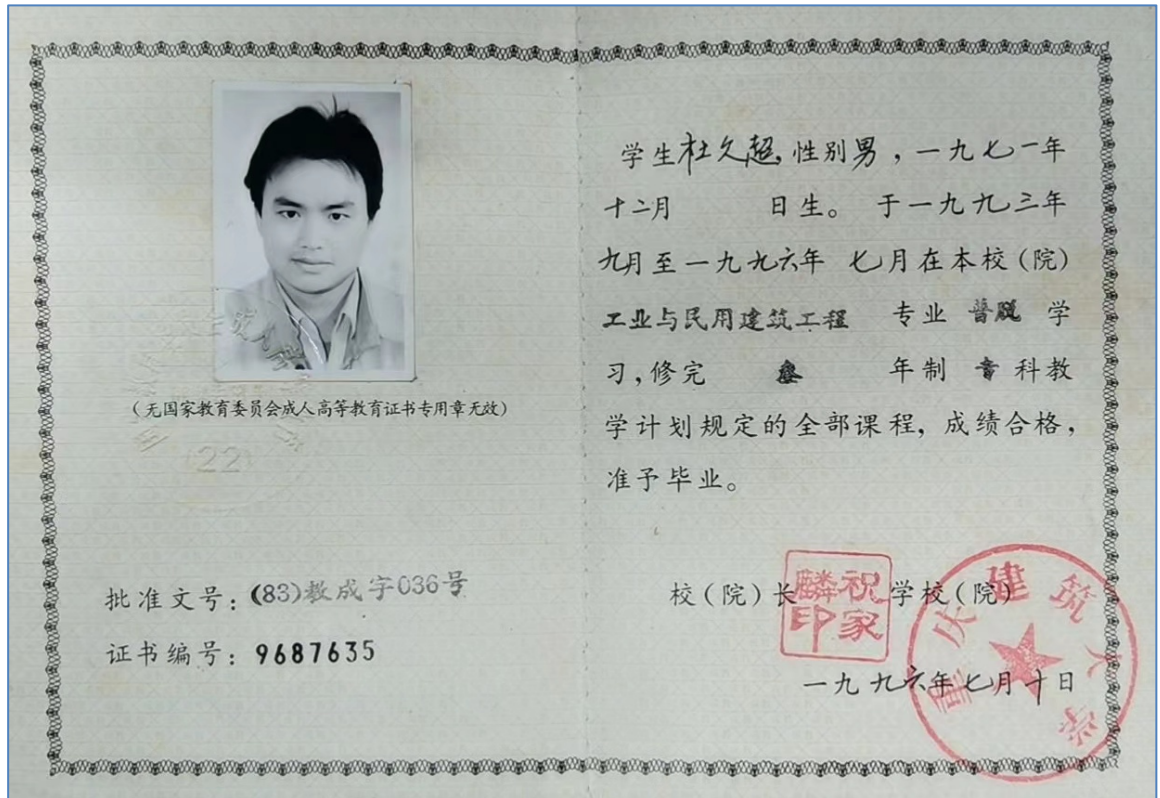 （无国家教育委员会成人高等教育证书专用章无效）
(22)
批准文号：(83)教成字036号
证书编号：9687635
学生杜久超，性别男，一九七一年
十二月　日生。于一九九三年
九月至一九九六年七月在本校（院）
工业与民用建筑工程　专业　普脱　学
习，修完　叁　年制　专科教
学计划规定的全部课程，成绩合格，
准予毕业。
校（院）长　学校（院）
祝家麟印
重庆建筑大学
一九九六年七月十日